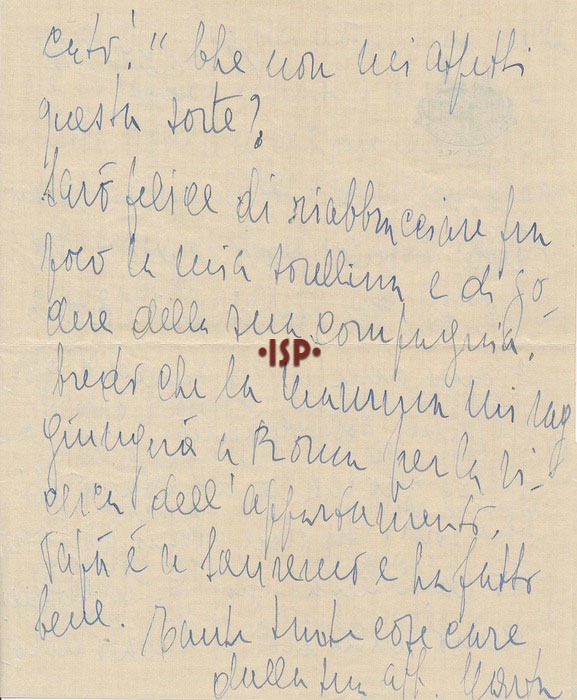 cato!" Che non mi aspetti
questa sorte?
Sarò felice di riabbracciare fra
poco la mia sorellina e di go-
dere della sua compagnia.
•ISP•
Credo che la mamma mi rag
giungerà a Roma per la ri-
cerca dell'appartamento.
Papà è a Sanremo e ha fatto
bene. Tante tante cose care
dalla tua aff. Marta